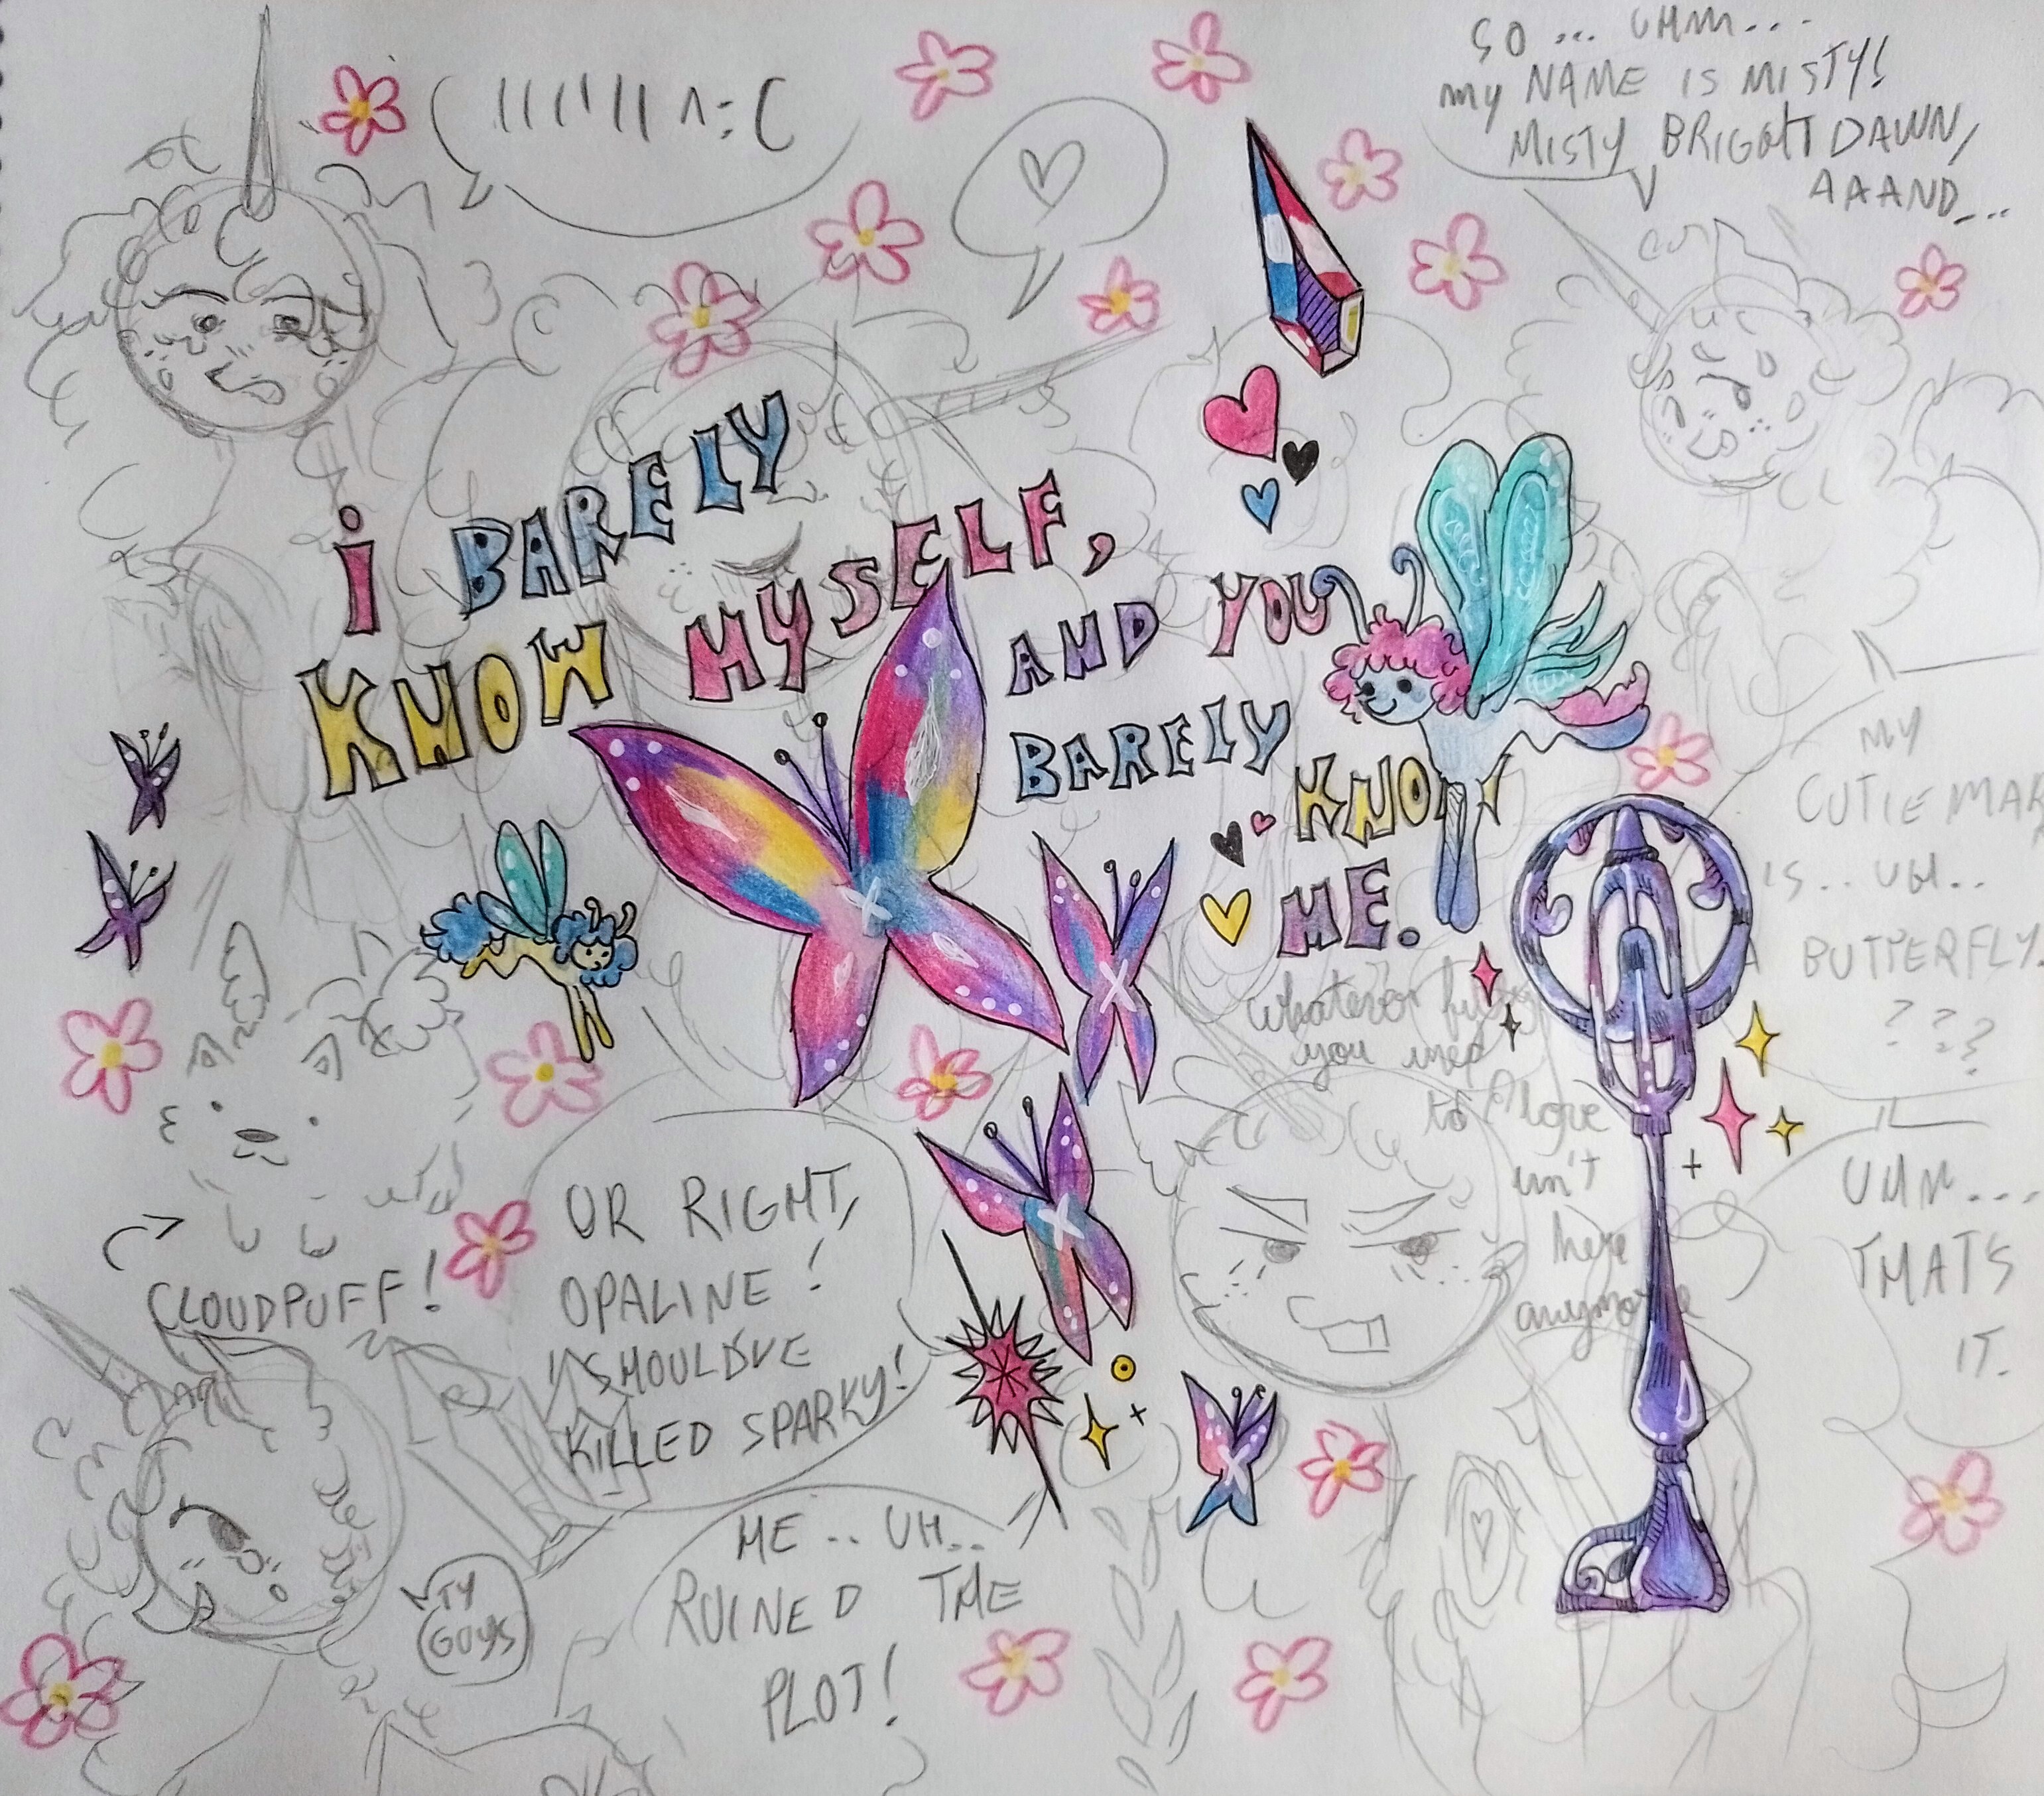 SO ... UHM...
MY NAME IS MISTY!
MISTY BRIGHTDAWN,
AAAND...
I BARELY
KNOW MYSELF,
AND YOU
BARELY
KNOW
ME.
whatever
you
to love
isn't
here
anymore
MY
CUTIE MAR
IS.. UH..
A BUTTERFLY.
???
UHM...
THATS
IT.
CLOUDPUFF!
OR RIGHT,
OPALINE!
I SHOULD'VE
KILLED SPARKY!
TY
GUYS
ME.. UH..
RUINED THE
PLOT!